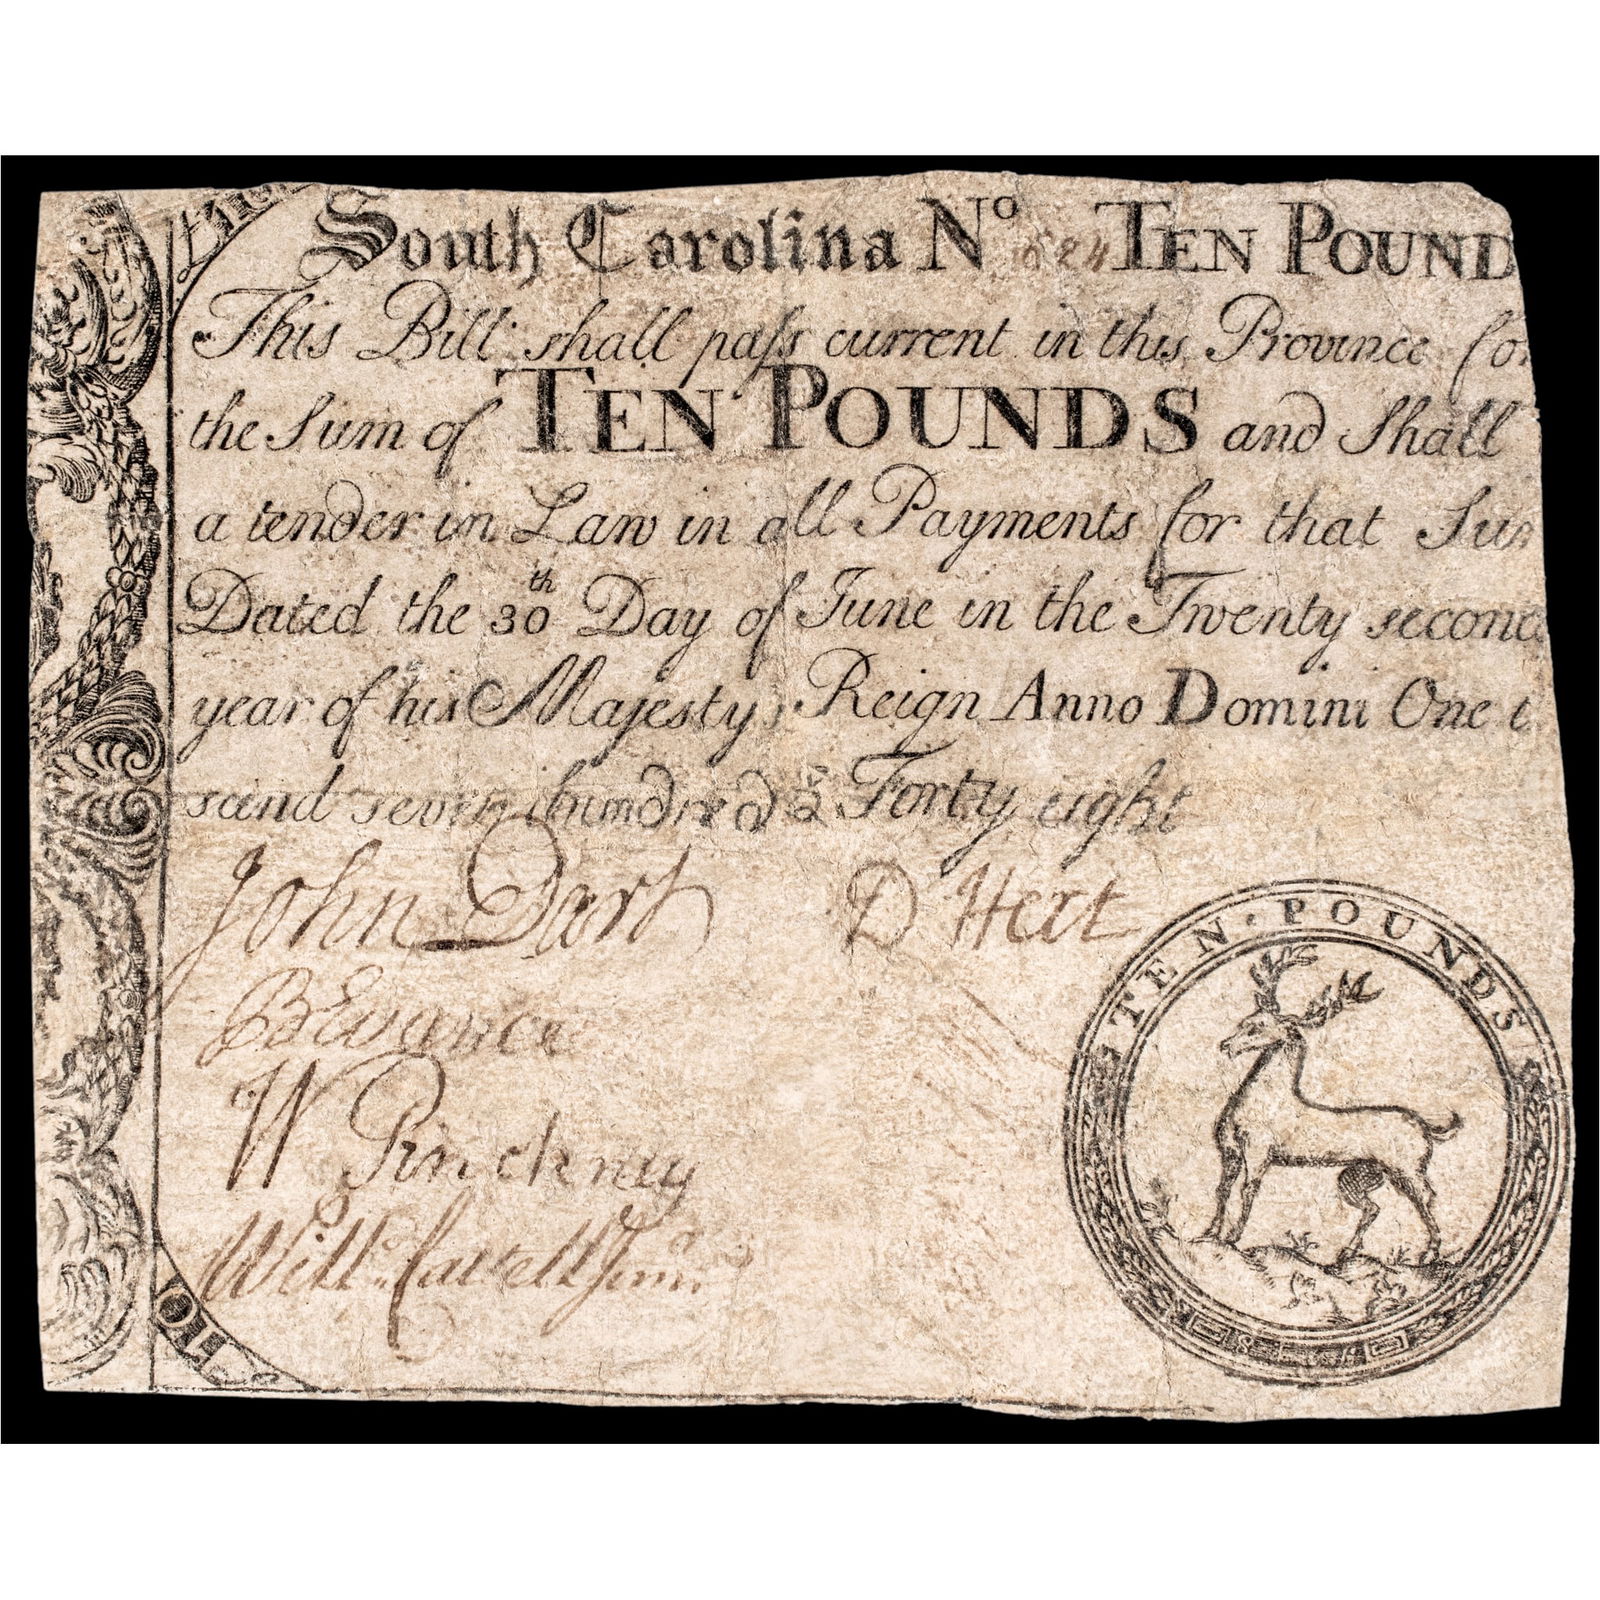 South Carolina Nº 1624 TEN POUND
This Bill shall paſs current in this Province for
the Sum of TEN POUNDS and Shall
a tender in Law in all Payments for that Sum
Dated the 30th Day of June in the Twenty second
year of his Majestys Reign Anno Domini One t
sand seven hundred & Forty eight
John Dart D Hext
W Pinckney
Will Cattell Junr
TEN · POUNDS